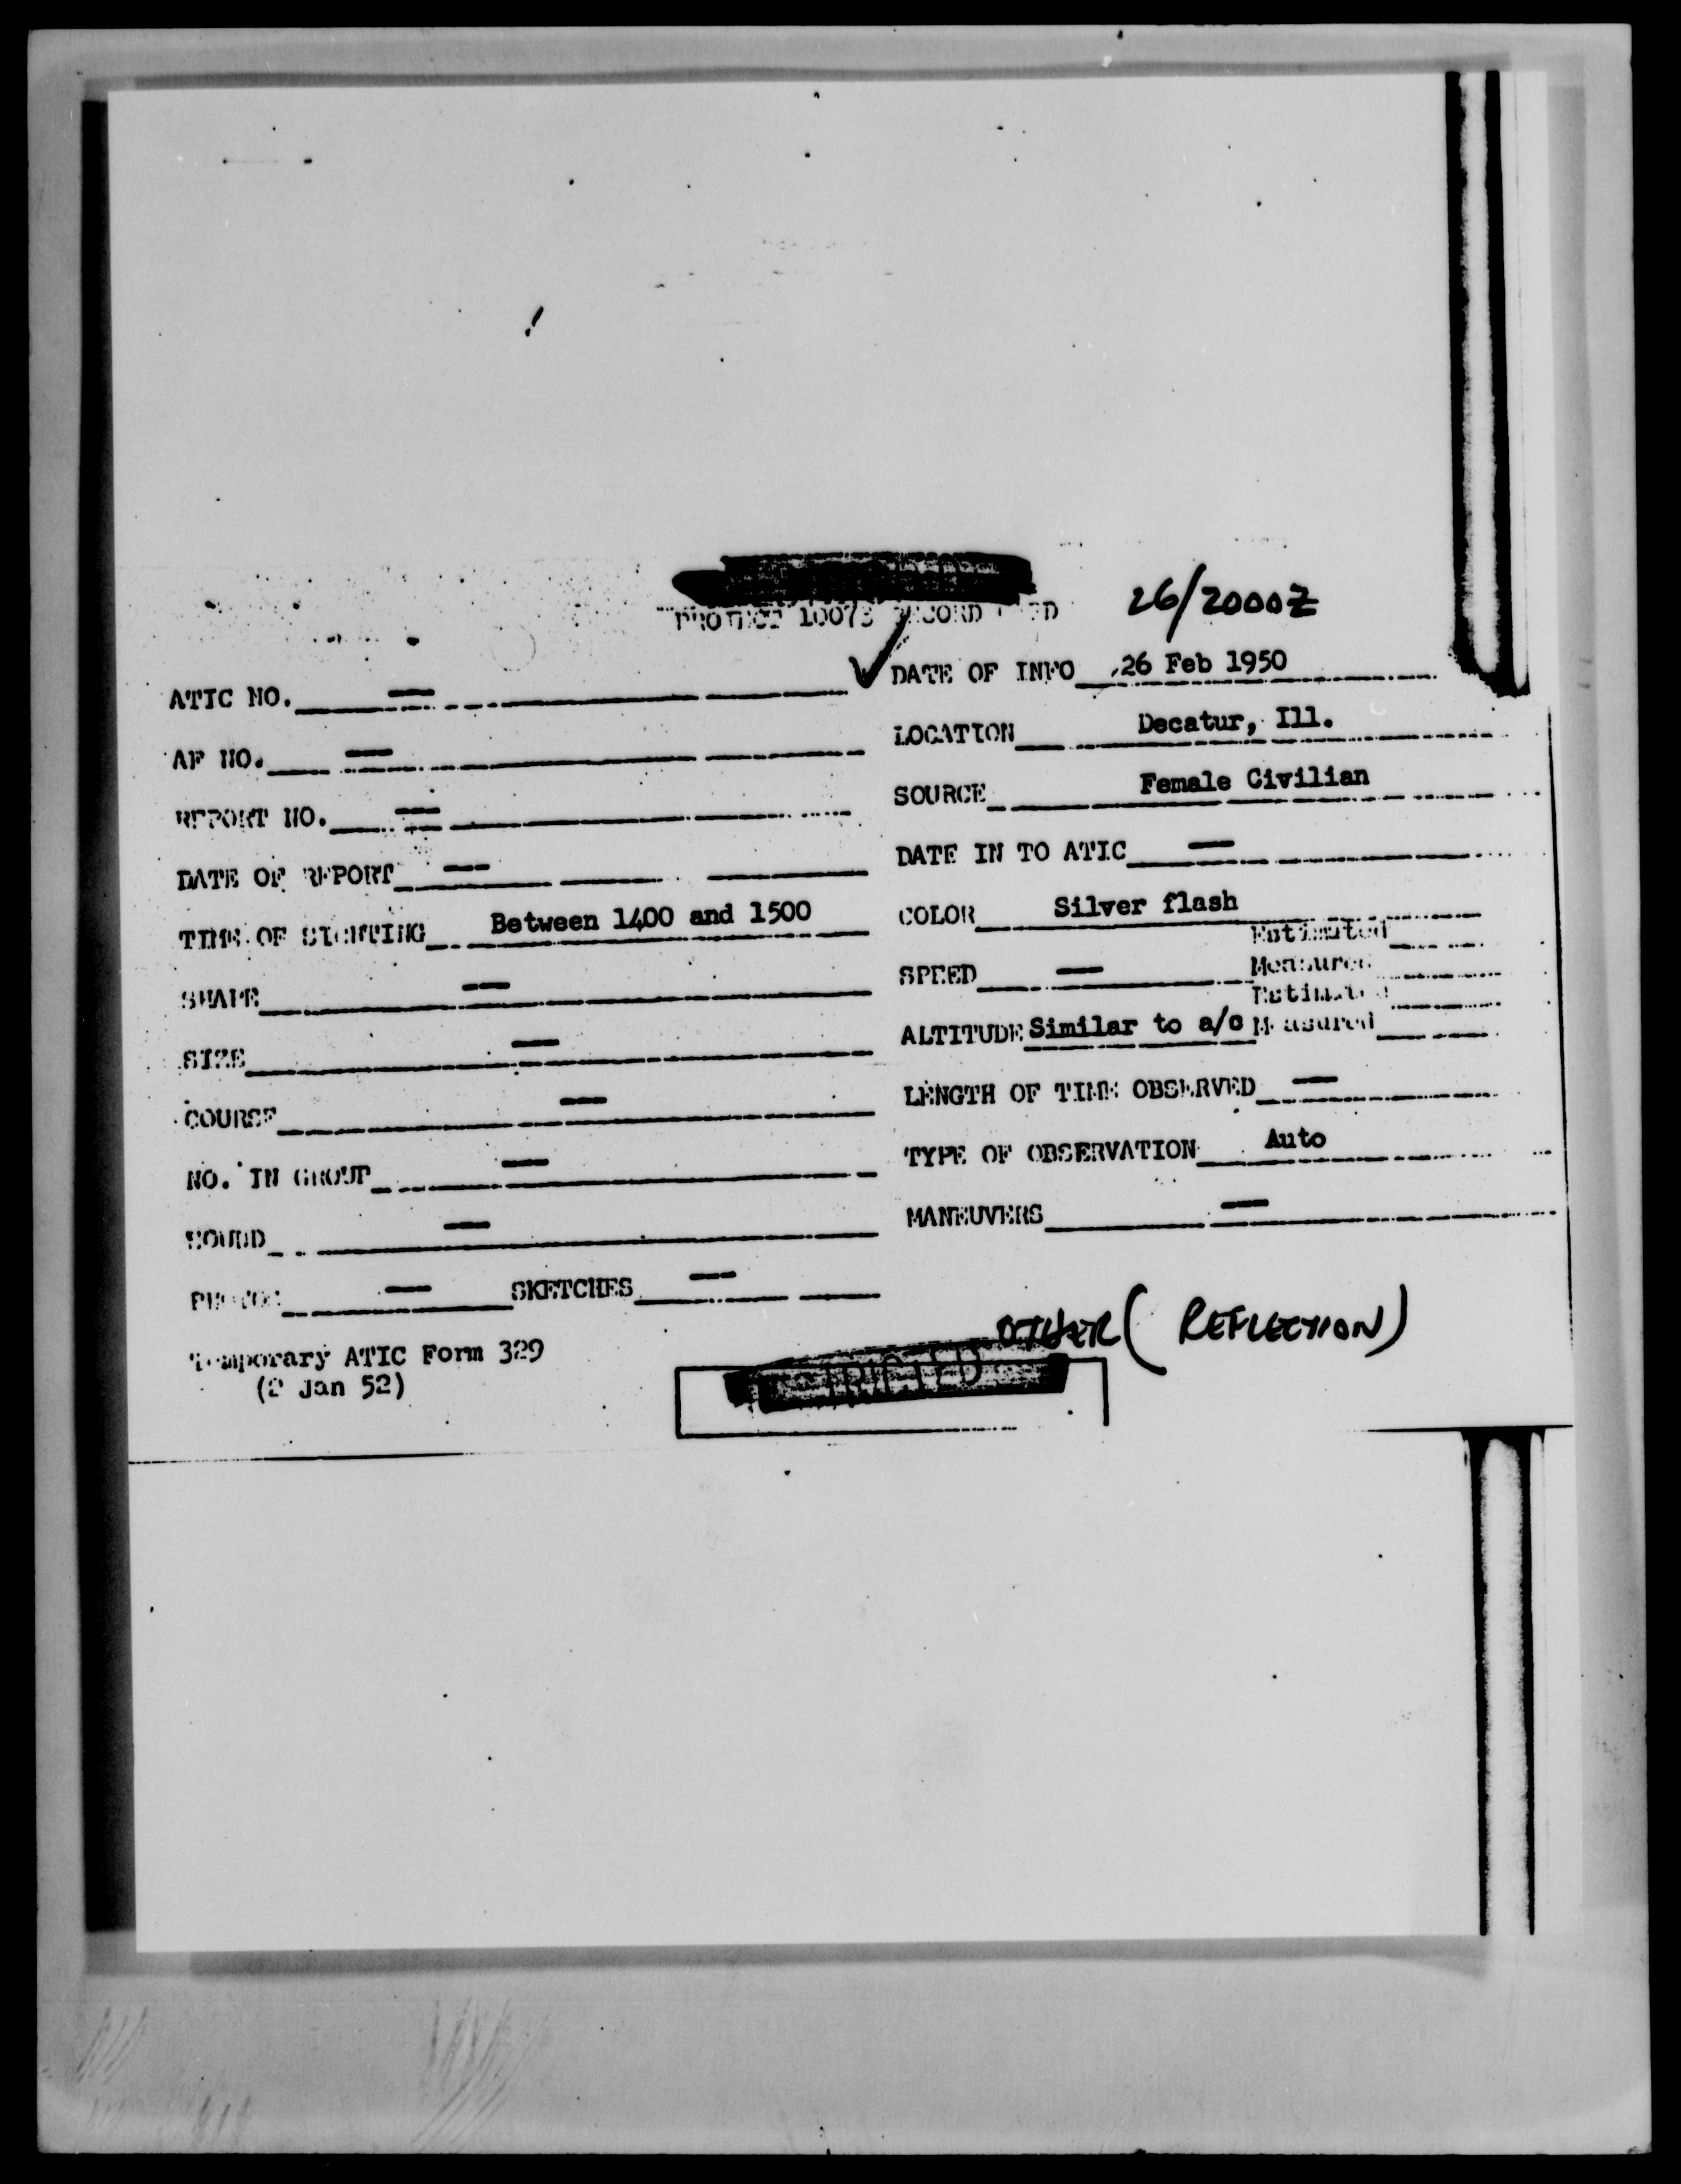 PROJECT 10073 RECORD CARD
26/2000Z
✓ DATE OF INFO 26 Feb 1950
ATIC NO. —
LOCATION Decatur, Ill.
AF NO. —
SOURCE Female Civilian
REPORT NO. —
DATE IN TO ATIC —
DATE OF REPORT —
COLOR Silver flash
TIME OF SIGHTING Between 1400 and 1500
Estimated
SPEED — Measured
SHAPE —
Estimated
ALTITUDE Similar to a/c Measured
SIZE —
LENGTH OF TIME OBSERVED —
COURSE —
TYPE OF OBSERVATION Auto
NO. IN GROUP —
MANEUVERS —
SOUND —
PHOTOS — SKETCHES —
OTHER (REFLECTION)
Temporary ATIC Form 329
(2 Jan 52)